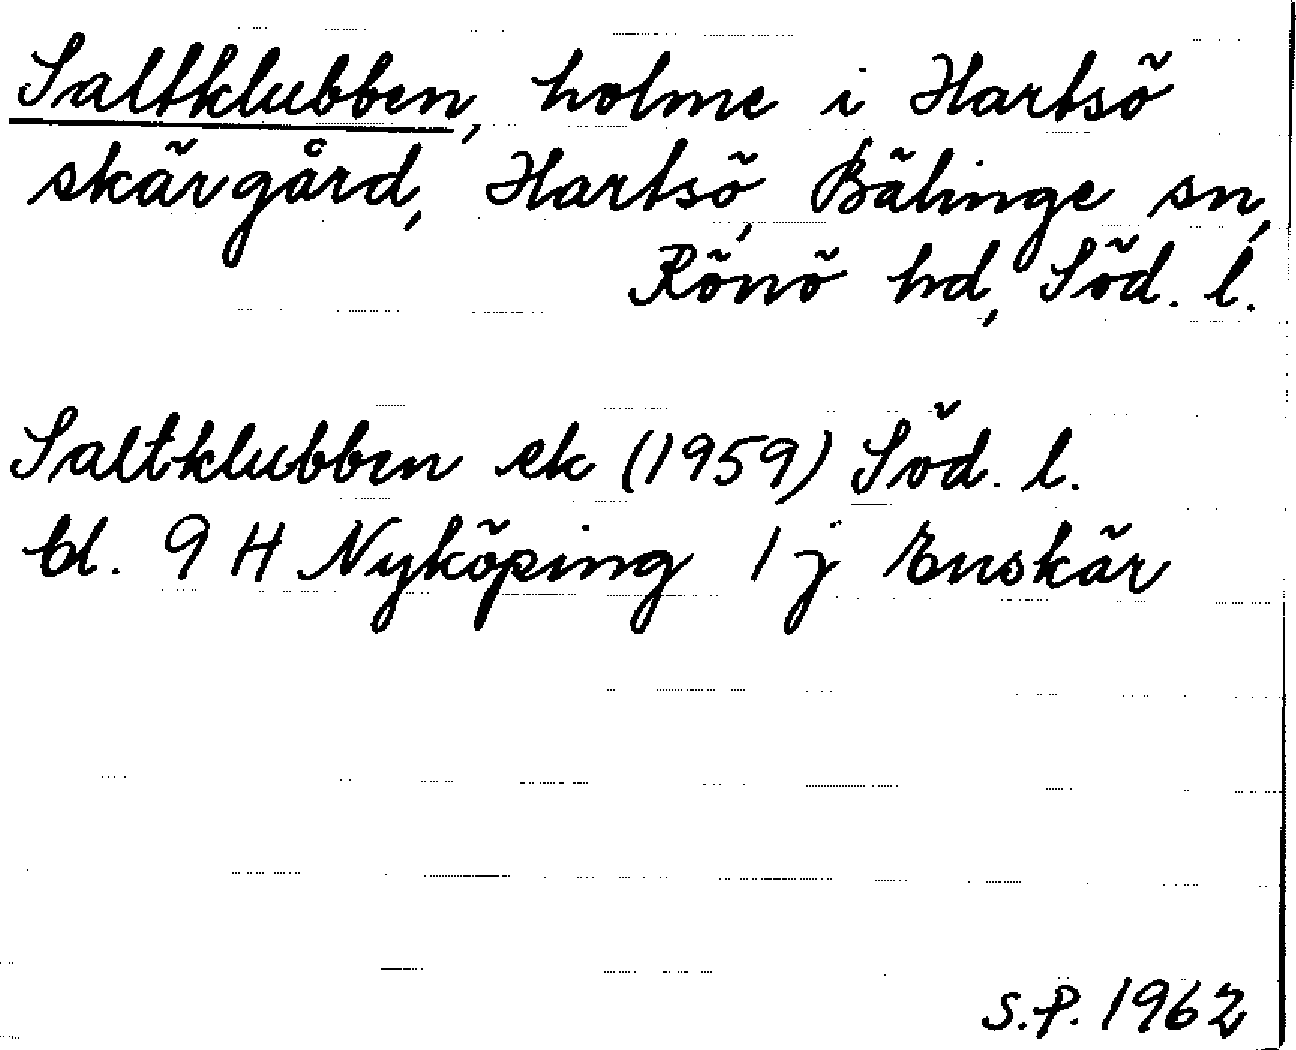 Saltklubben, holme i Hartsö
skärgård, Hartsö, Bälinge sn,
Rönö hd, Söd. l.
Saltklubben ek (1959) Söd. l.
bl. 9 H Nyköping 1 j Enskär
S.P. 1962